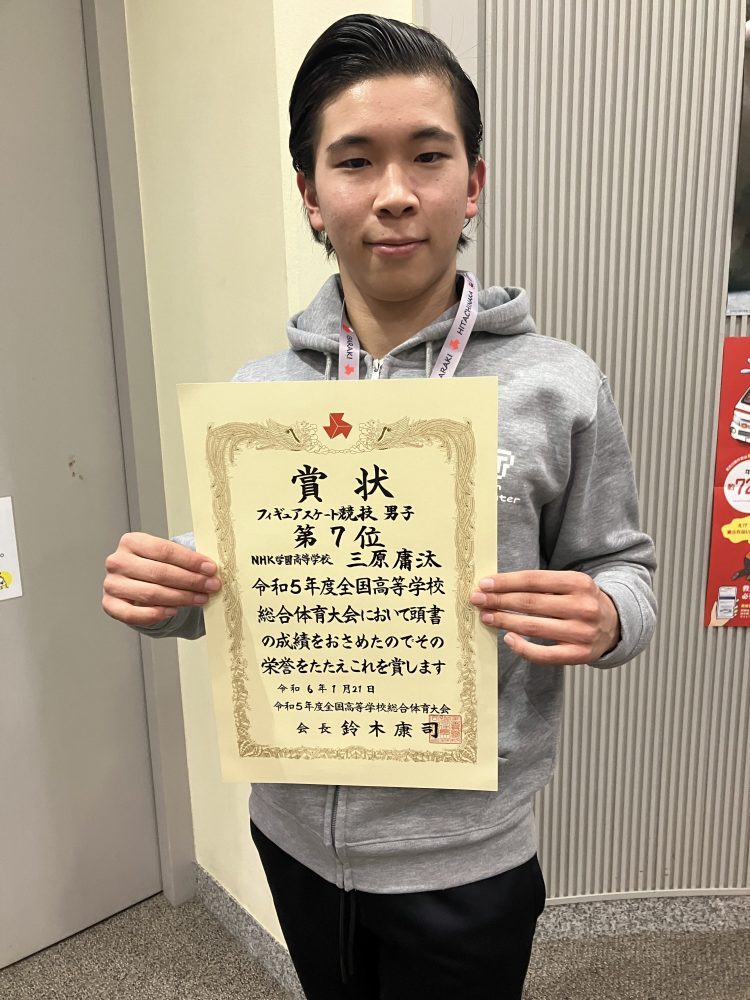 賞状
フィギュアスケート競技 男子
第7位
NHK学園高等学校 三原庸汰
令和5年度全国高等学校
総合体育大会において頭書
の成績をおさめたのでその
栄誉をたたえこれを賞します
令和6年1月21日
令和5年度全国高等学校総合体育大会
会長 鈴木康司
BARAKI
HITACHINAKA
ARAKI
約72